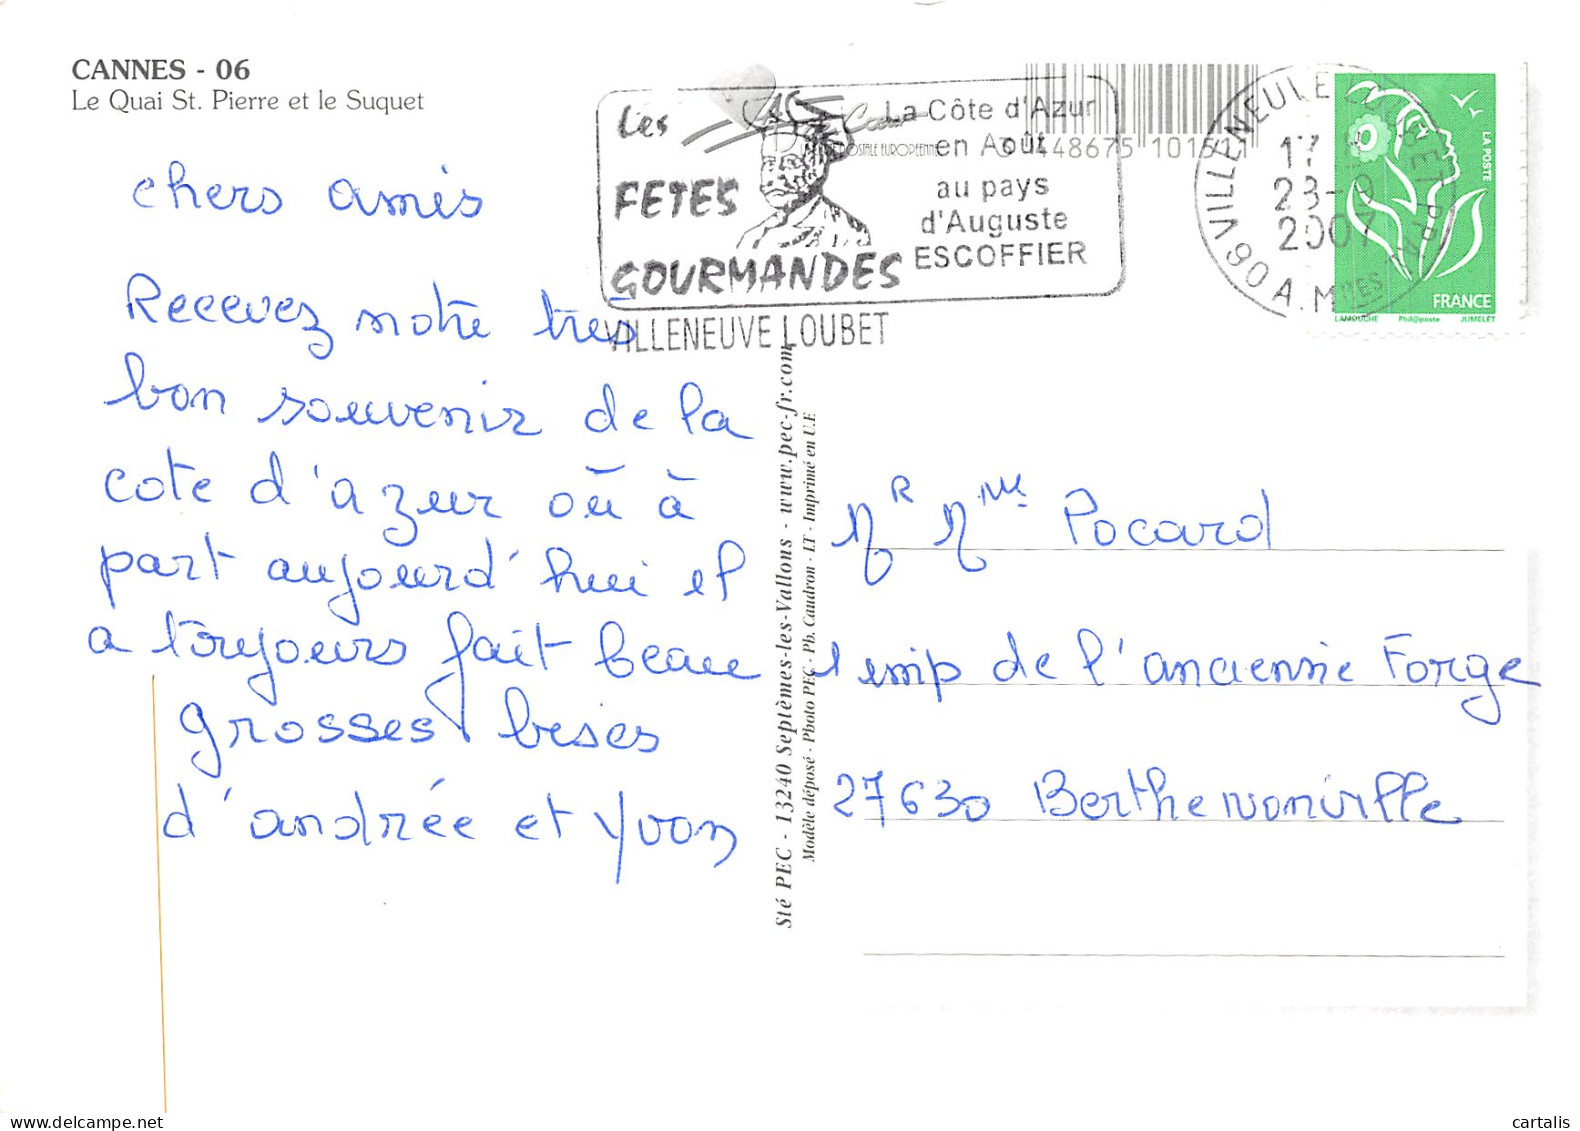 CANNES - 06
Le Quai St. Pierre et le Suquet
chers amis
Recevez notre tres
bon souvenir de la
cote d'azur où à
part aujourd'hui il
a toujours fait beau
grosses bises
d'andrée et Yvon
Les
FETES
GOURMANDES
La Côte d'Azur
en Août
au pays
d'Auguste
ESCOFFIER
VILLENEUVE LOUBET
POSTALE EUROPEENNE
VILLENEUVE LOUBET PPAL
17
23-9
2007
06 A. MMES
LA POSTE
FRANCE
LAMOUCHE Phil@poste JUMELET
Sté PEC - 13240 Septèmes-les-Vallons - www.pec-fr.com
Modèle déposé - Photo PEC - Ph. Caudron - IT - Imprimé en U.E
Mr Mme Pocard
1 imp de l'ancienne Forge
27630 Berthenonville
cartalis